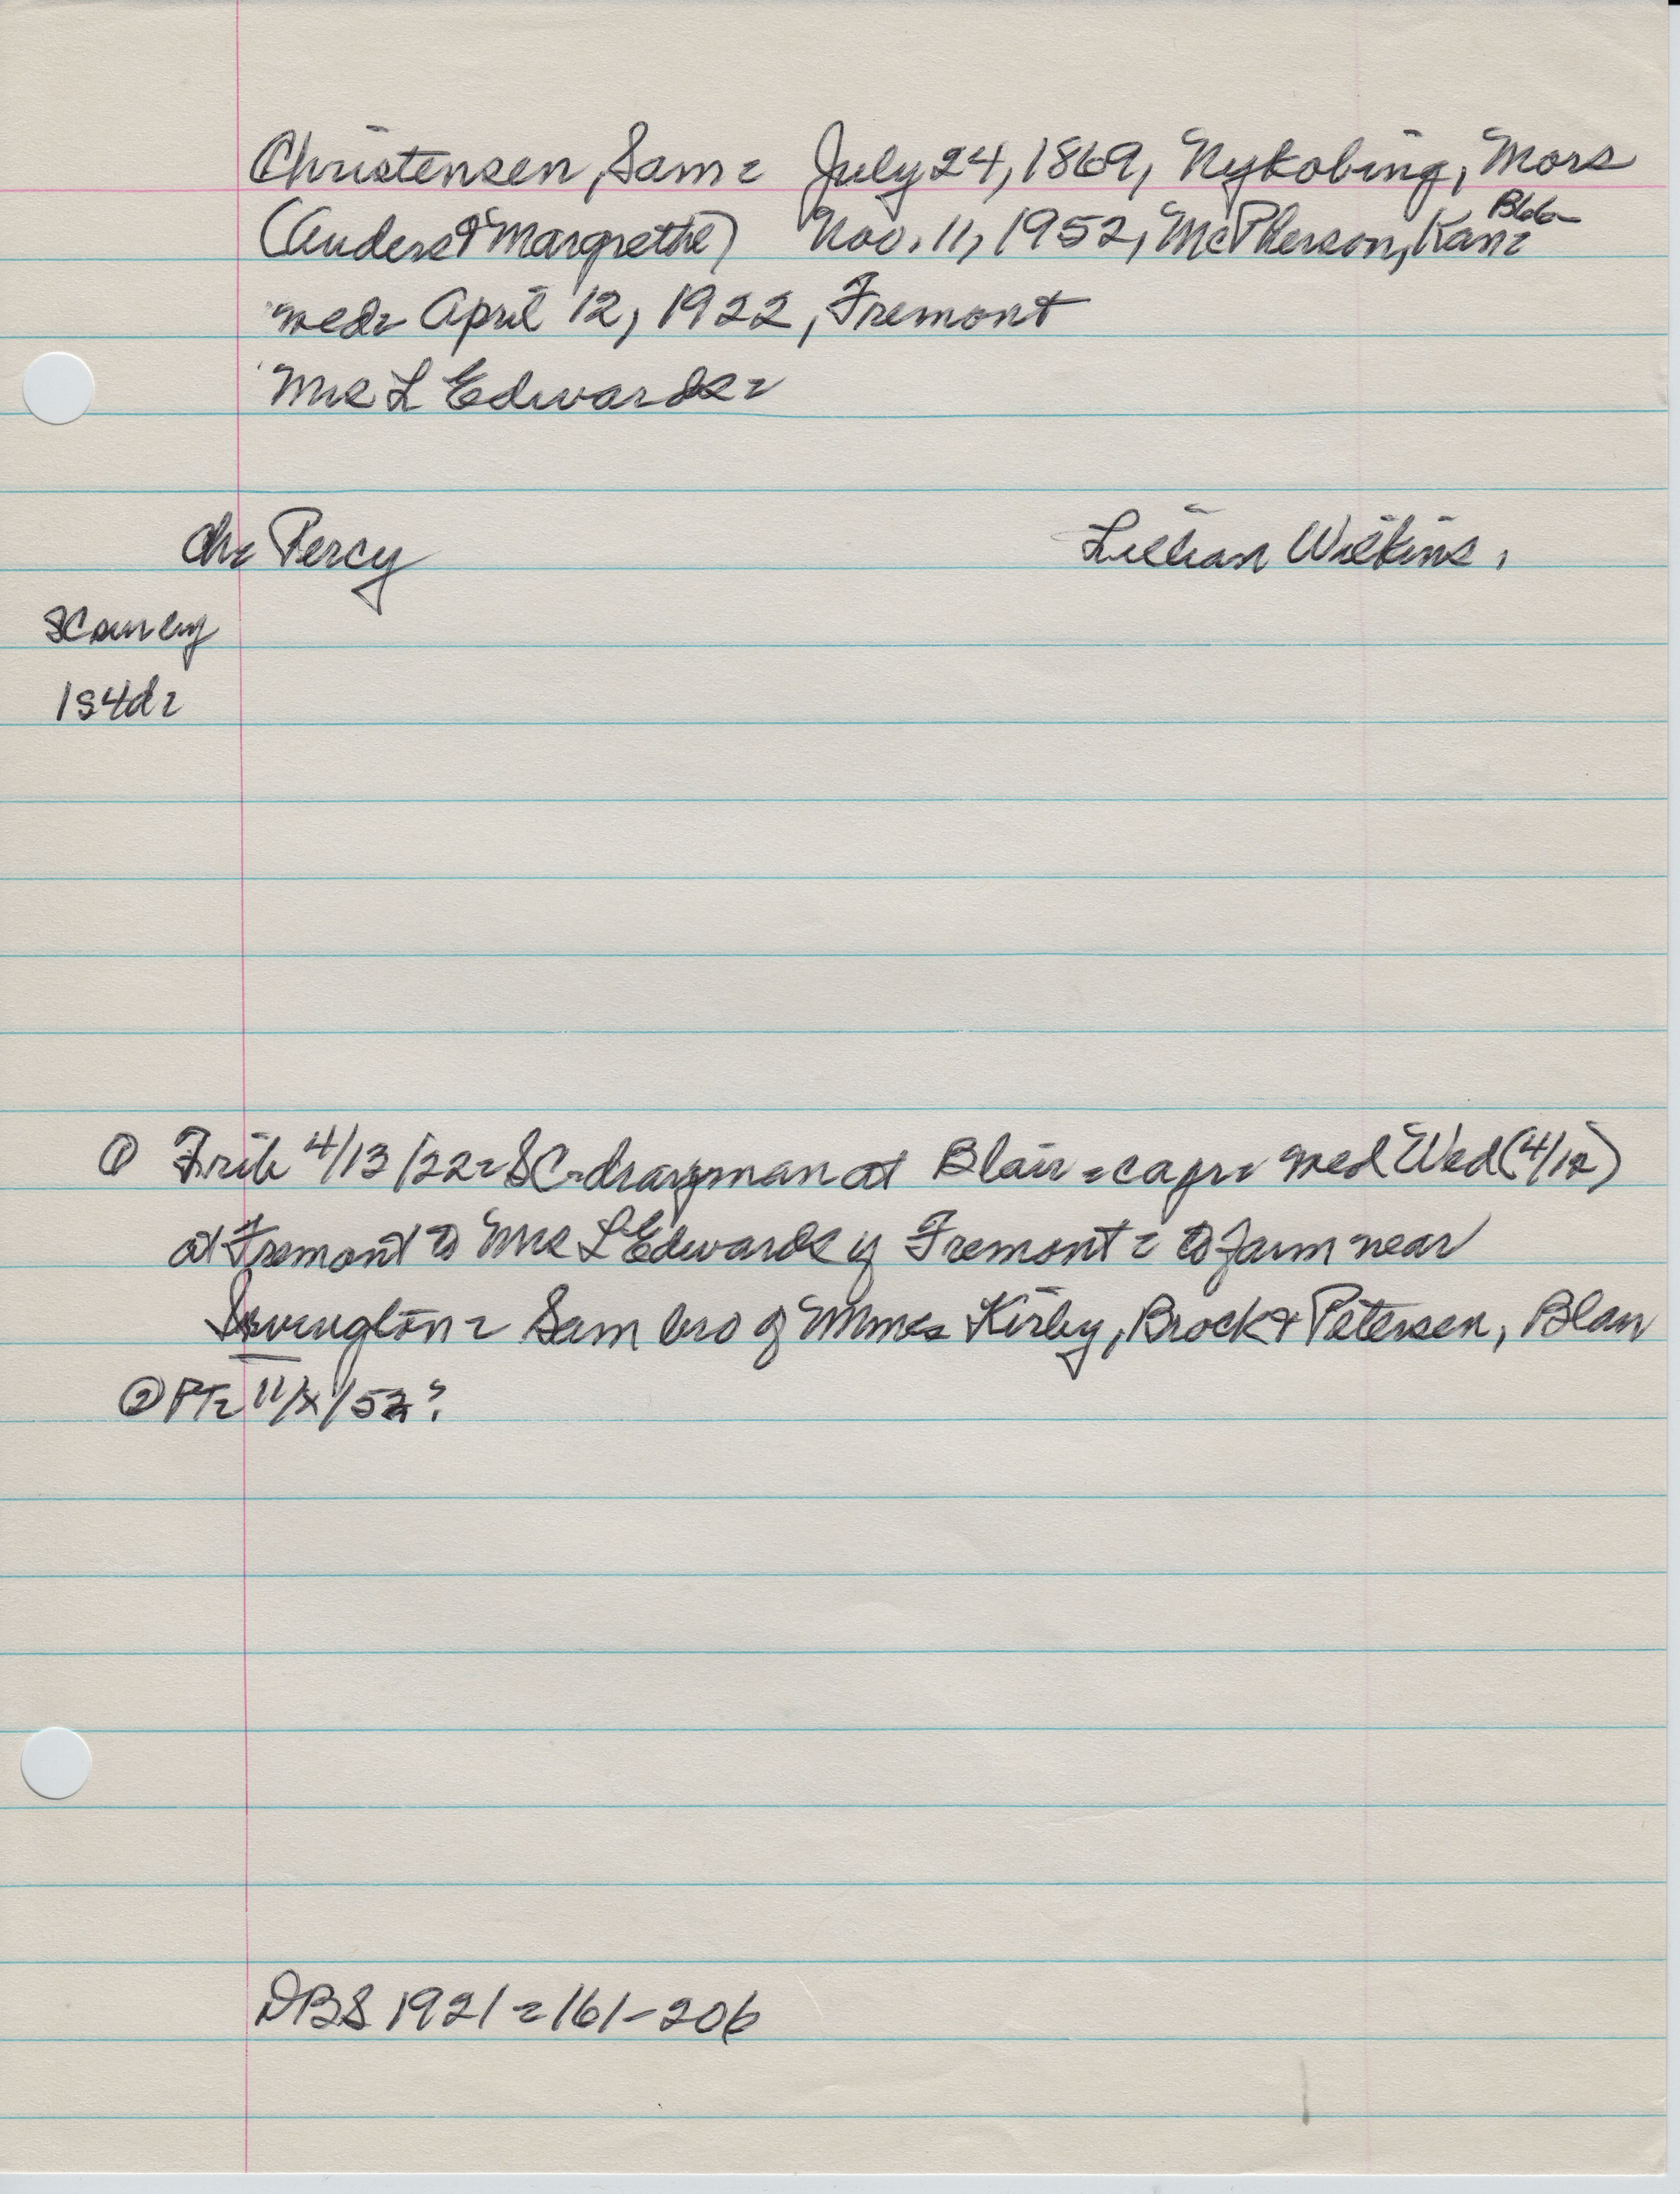 Christensen, Sam = July 24, 1869, Nykobing, Mors
(Anders & Margrethe) Nov. 11, 1952, McPherson, Kan =
med = April 12, 1922, Fremont
Mrs L Edwards =
Ch = Percy Lillian Wilkins,
1s4d =
① 4/13/22 = SC - drayman at Blair = med Wed (4/12)
at Fremont to Mrs L Edwards of Fremont = to farm near
Irvington = Sam bro of Mmes Kirby, Brock & Petersen, Blair
② PT = 11/x/52?
DBS 1921 = 161-206